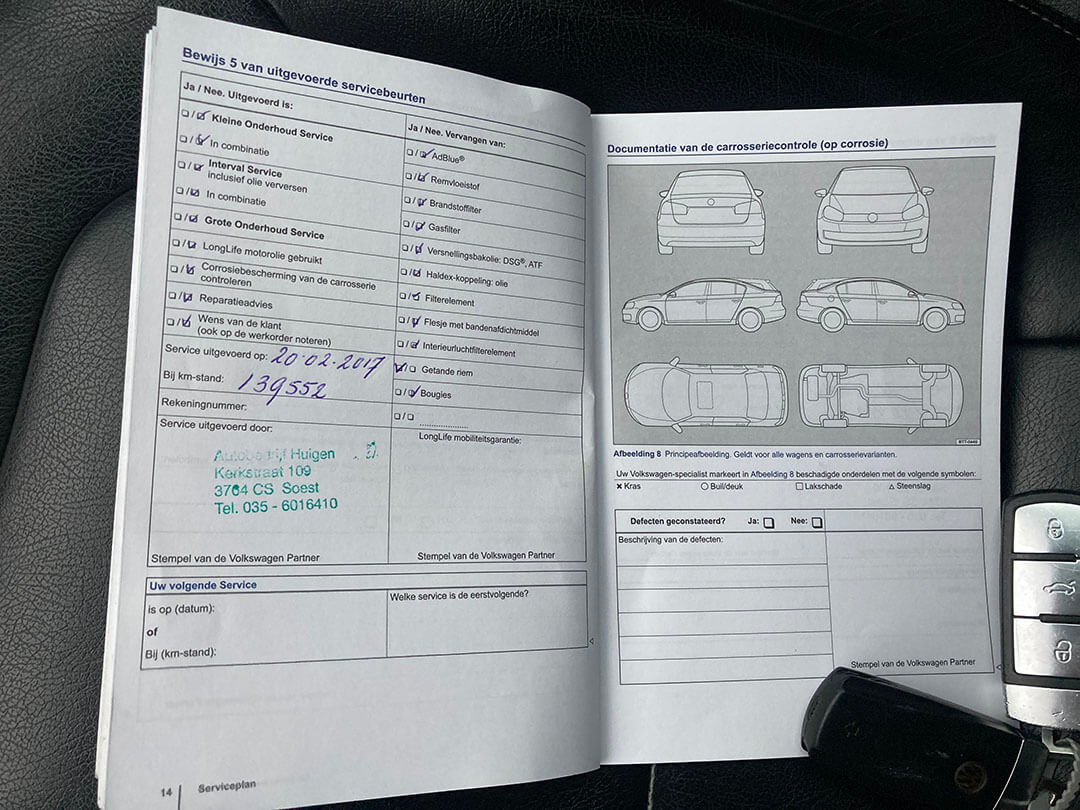 Bewijs 5 van uitgevoerde servicebeurten
Ja / Nee. Uitgevoerd is:
Kleine Onderhoud Service
In combinatie
Interval Service
inclusief olie verversen
In combinatie
Grote Onderhoud Service
LongLife motorolie gebruikt
Corrosiebescherming van de carrosserie
controleren
Reparatieadvies
Wens van de klant
(ook op de werkorder noteren)
Service uitgevoerd op: 20-02-2017
Bij km-stand: 139552
Rekeningnummer:
Service uitgevoerd door:
Huigen
Kerkstraat 109
3764 CS Soest
Tel. 035 - 6016410
Stempel van de Volkswagen Partner
Ja / Nee. Vervangen van:
AdBlue®
Remvloeistof
Brandstoffilter
Gasfilter
Versnellingsbakolie: DSG®, ATF
Haldex-koppeling: olie
Filterelement
Flesje met bandenafdichtmiddel
Interieurluchtfilterelement
Getande riem
Bougies
LongLife mobiliteitsgarantie:
Stempel van de Volkswagen Partner
Uw volgende Service
is op (datum):
of
Bij (km-stand):
Welke service is de eerstvolgende?
14 Serviceplan
Documentatie van de carrosseriecontrole (op corrosie)
Afbeelding 8 Principeafbeelding. Geldt voor alle wagens en carrosserievarianten.
Uw Volkswagen-specialist markeert in Afbeelding 8 beschadigde onderdelen met de volgende symbolen:
Kras Buil/deuk Lakschade Steenslag
Defecten geconstateerd? Ja: Nee:
Beschrijving van de defecten:
Stempel van de Volkswagen Partner